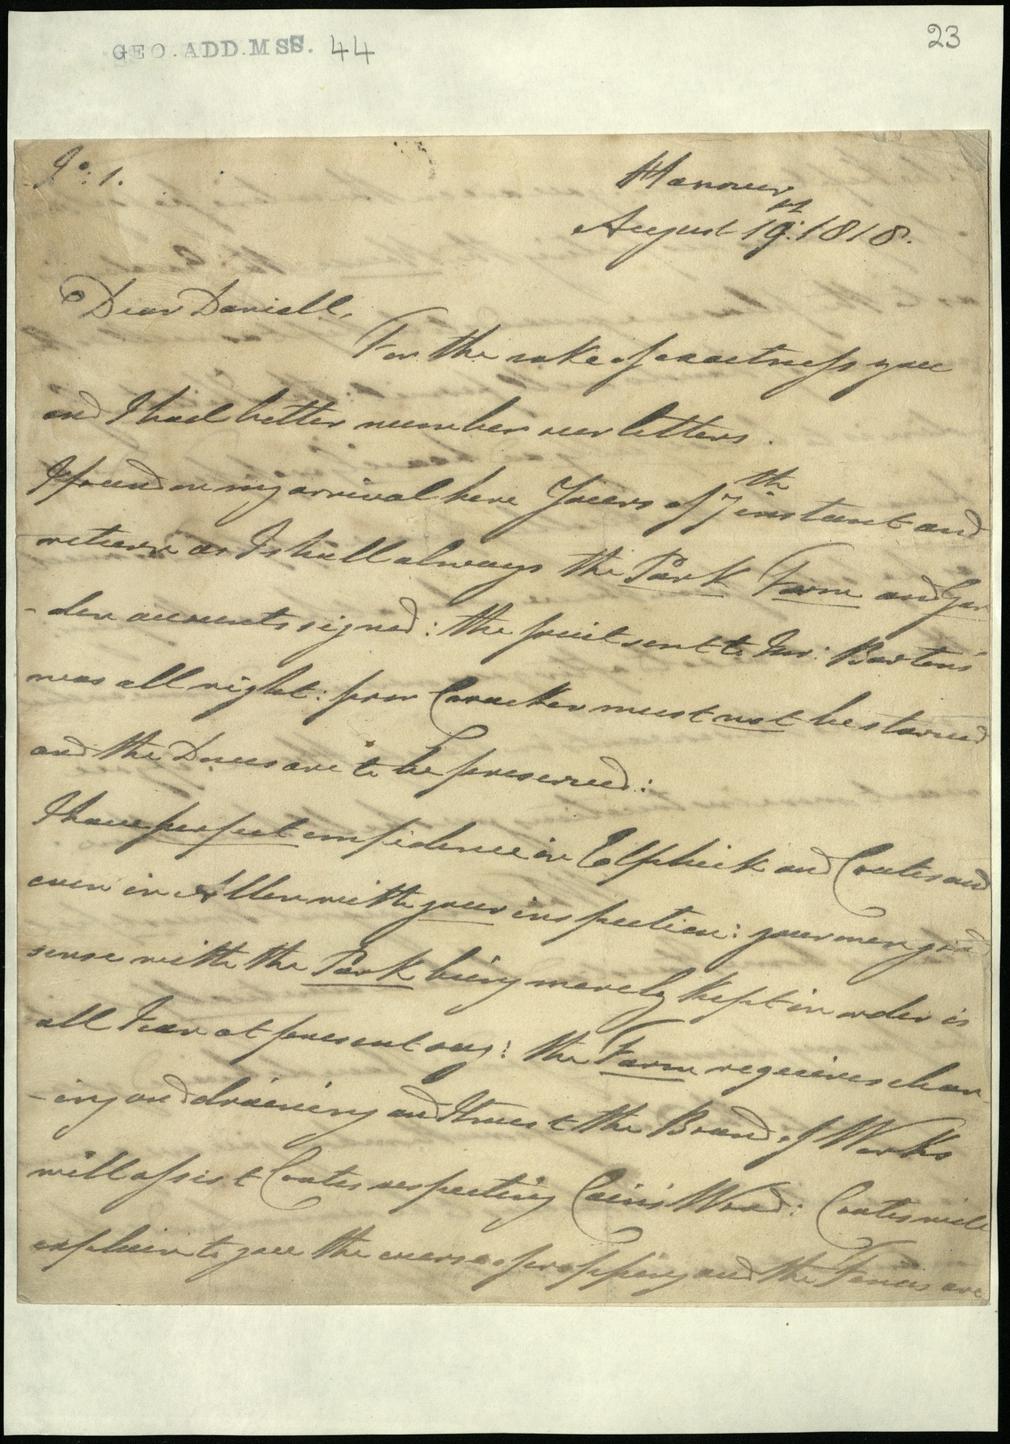 GEO. ADD. MSS. 44
23
No: 1.
Hanover
August 19: 1818.
Dear Daniell,
For the sake of exactness you
and I had better number our letters.
I found on my arrival here Yours of 7th instant and
return as I shall always the Park Farm and Gar
-den accounts signed: the fruit sent to Mr: Barton's
was all right: poor Cracker must not be starved
and the Does are to be preserved:
I have perfect confidence in Elphick and Coates and
even in Allen with your inspection: your men good
sense with the Park being merely kept in order is
all I can at present say: the Farm requires clean
-ing and draining and I trust the Board of Works
will assist Coates respecting Wood: Coates will
explain to you the of propping and the Fences are